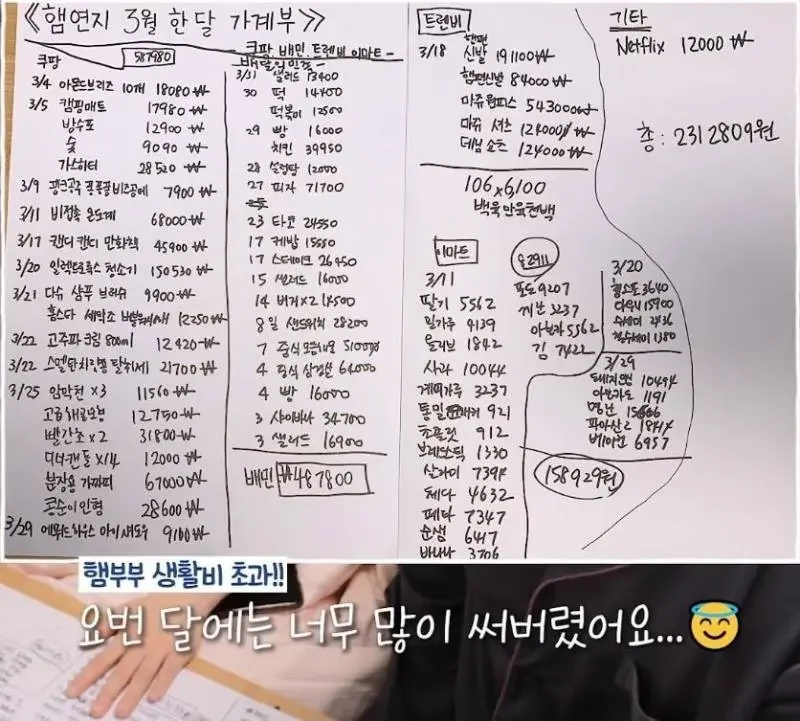 《햄연지 3월 한달 가계부》
쿠팡 587980
3/4 아몬드브리즈 10개 18080₩
3/5 캠핑매트 17980₩
방수포 12900₩
숯 9090₩
가스히터 28520₩
3/9 7900₩
3/11 비접촉 온도계 68000₩
3/17 캔디캔디 만화책 45900₩
3/20 일렉트로룩스 청소기 150530₩
3/21 다슈 샴푸 브러쉬 9900₩
홈스타 세탁조 12250₩
3/22 고주파 크림 800ml 12420₩
3/22 탈취제 21700₩
3/25 암막천 x3 11560₩
고급 12750₩
빨간초 x2 31800₩
디너캔들 x14 12000₩
분장용 67000₩
콩순이인형 28600₩
3/29 에뛰드하우스 아이섀도우 9100₩
쿠팡 배민 트렌비 이마트
3/31 샐러드 13400
30 떡 14400
떡볶이 12500
29 빵 16000
치킨 39950
28 설렁탕 12000
27 피자 71700
23 타코 24550
17 케밥 15550
17 스테이크 26450
15 샐러드 16000
14 버거x2 14500
8일 샌드위치 28200
7 중식 51000
4 중식 64000
4 빵 16000
3 34700
3 샐러드 16900
배민 ₩487800
트렌비
3/18 햄편 신발 191100₩
햄편신발 84000₩
마쥬원피스 543000₩
마쥬 셔츠 124000₩
데님쇼츠 124000₩
106x6,100
백육만육천백
이마트
3/11
딸기 5562
밀가루 4139
올리브 1842
사과 10044
계피가루 3237
통밀 921
초플릿 912
브레드스틱 1330
살라미 7394
체다 4632
페타 7347
순생 6417
바나나 3706
포도 9207
3237
아보카도 5562
김 7422
3/20
3640
다우니 15900
수세미 2436
1380
3/29
10494
아보카도 1191
명란 15666
베이컨 6957
158929원
기타
Netflix 12000₩
총 : 2312809원
햄부부 생활비 초과!!
요번 달에는 너무 많이 써버렸어요...😇